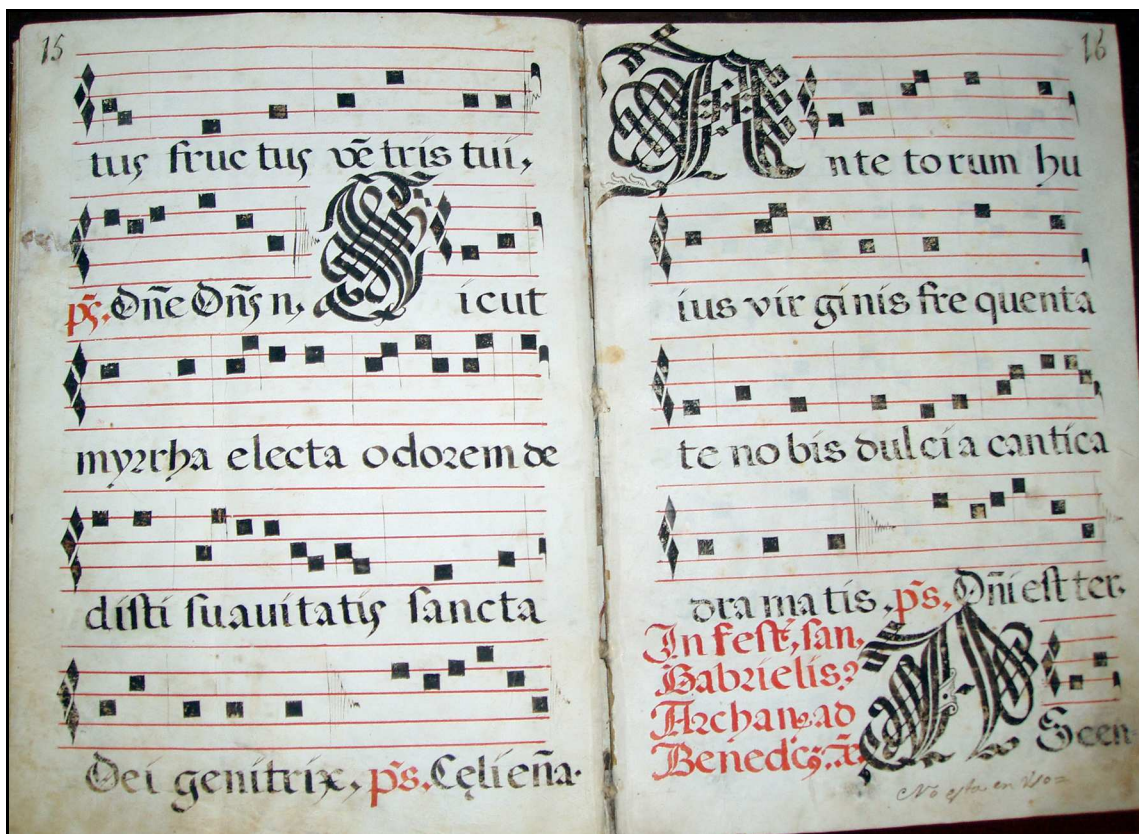 15
tus fruc tus vẽ tris tui,
ps̃. Dñe Dñs n, Sicut
myrrha electa odorem de
disti suauitatis sancta
Dei genitrix, ps̃. Cęli eña.
16
Ante torum hu
ius vir ginis fre quenta
te no bis dulci a cantica
dra ma tis, ps̃, Dñi est ter.
In fest, san,
Gabrielis
Archan, ad
Benedic, ã.
Ascen
No esta en Uso=